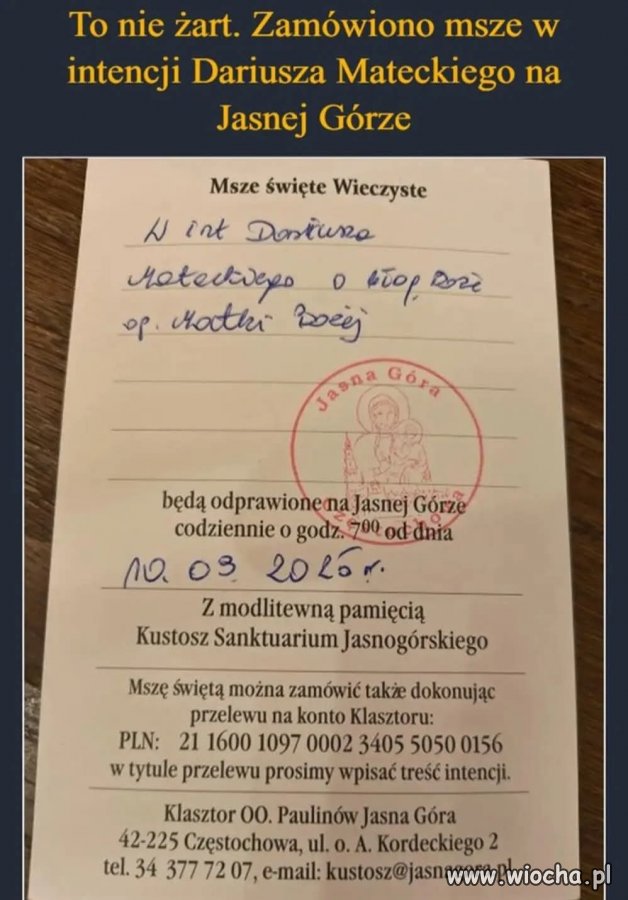 To nie żart. Zamówiono msze w
intencji Dariusza Mateckiego na
Jasnej Górze
Msze święte Wieczyste
W int Dariusza
Mateckiego o błog. Boże
op. Matki Bożej
Jasna Góra
Częstochowa
będą odprawione na Jasnej Górze
codziennie o godz. 7⁰⁰ od dnia
10. 03. 2025 r.
Z modlitewną pamięcią
Kustosz Sanktuarium Jasnogórskiego
Mszę świętą można zamówić także dokonując
przelewu na konto Klasztoru:
PLN: 21 1600 1097 0002 3405 5050 0156
w tytule przelewu prosimy wpisać treść intencji.
Klasztor OO. Paulinów Jasna Góra
42-225 Częstochowa, ul. o. A. Kordeckiego 2
tel. 34 377 72 07, e-mail: kustosz@jasnagora.pl
www.wiocha.pl